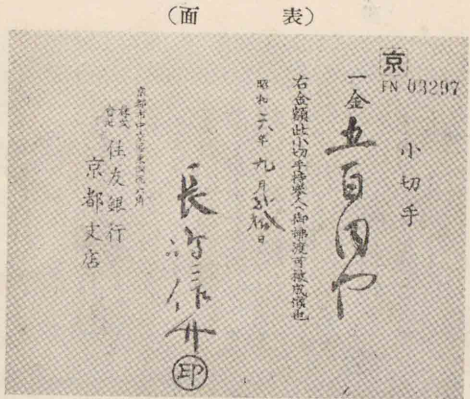 （面　表）
京
FN 03297
小切手
一金 五百円也
右金額此小切手持参人へ御拂渡可被成候也
昭和 年 九月 日
長 作
印
京都市中京
株式会社 住友銀行
京都支店